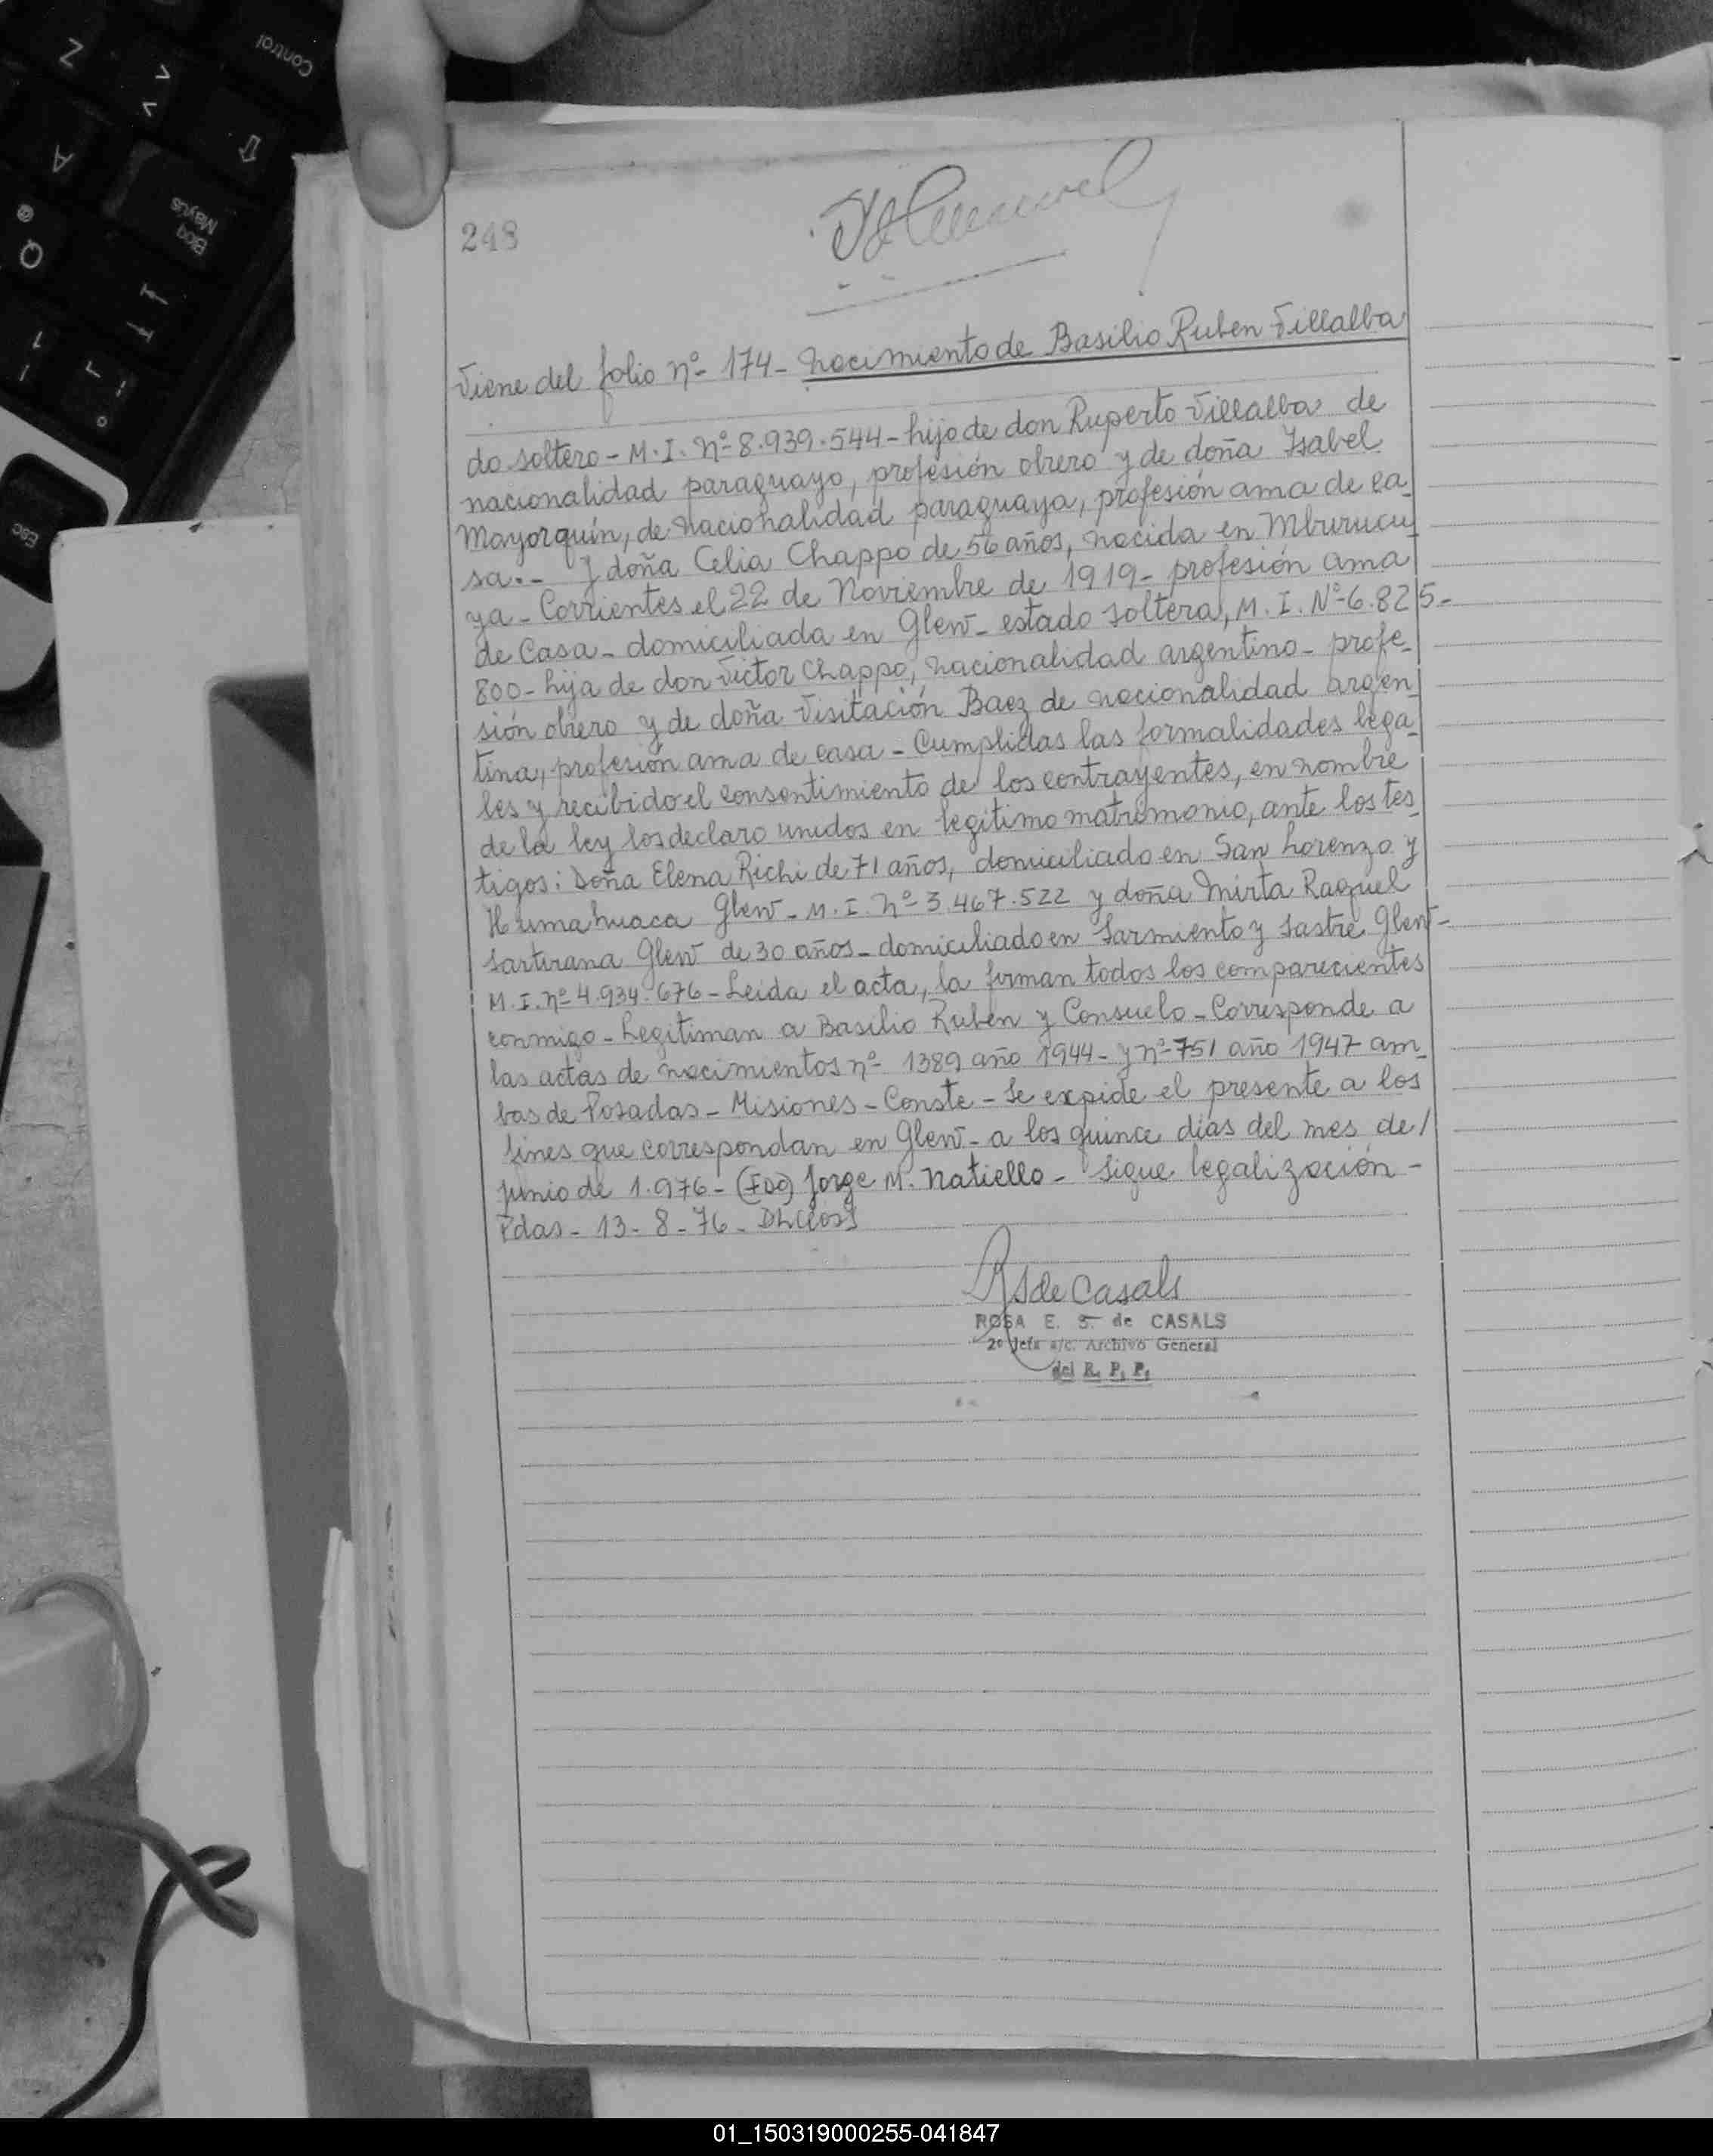 248
Viene del folio nº 174 - Nacimiento de Basilio Ruben Villalba
do soltero - M. I. Nº 8.939.544 - hijo de don Ruperto Villalba de
nacionalidad paraguayo, profesión obrero y de doña Isabel
Mayorquín, de nacionalidad paraguaya, profesión ama de ca_
sa. - Y doña Celia Chappo de 56 años, nacida en Mburucu_
ya - Corrientes el 22 de Noviembre de 1919 - profesión ama
de Casa - domiciliada en Glew - estado soltera, M. I. Nº 6.825 -
800 - hija de don Victor Chappo, nacionalidad argentino - profe_
sión obrero y de doña Visitación Baez de nacionalidad argen_
tina, profesión ama de casa - Cumplidas las formalidades lega_
les y recibido el consentimiento de los contrayentes, en nombre
de la ley los declaro unidos en legitimo matrimonio, ante los tes_
tigos: Doña Elena Richi de 71 años, domiciliado en San Lorenzo y
Humahuaca Glew - M. I. nº 3.467.522 y doña Mirta Raquel
Sartirana Glew de 30 años - domiciliado en Sarmiento y Sastre Glew -
M. I. nº 4.934.676 - Leida el acta, la firman todos los comparecientes
conmigo - Legitiman a Basilio Ruben y Consuelo - Corresponde a
las actas de nacimientos nº 1389 año 1944 - y nº 751 año 1947 am_
bas de Posadas - Misiones - Conste - Se expide el presente a los
fines que correspondan en Glew - a los quince dias del mes de /
junio de 1.976 - (Fdo) Jorge M. Natiello - Sigue legalización -
Pdas - 13 - 8 - 76 -
RS de Casals
ROSA E. S. de CASALS
2º Jefa a/c. Archivo General
del R. P. P.
Control
Z
<
>
A
Bloq
Mayús
@
Q
1
!
Esc
01_150319000255-041847